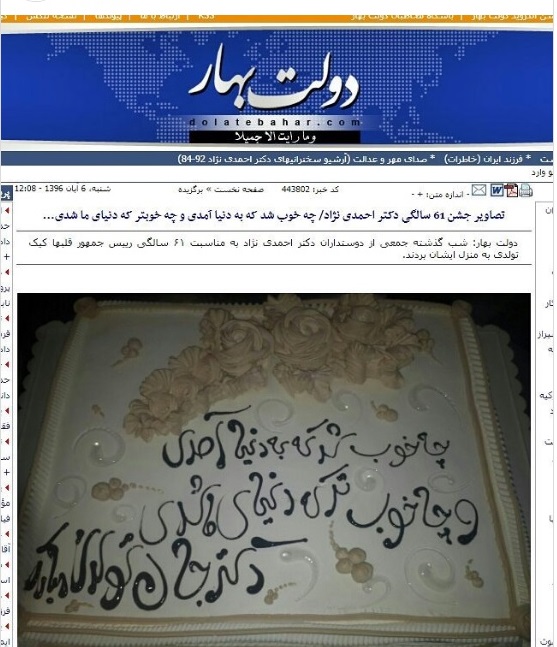 دولت بهار
dolatebahar.com
وما رایت الا جمیلا
* فرزند ایران (خاطرات) * صدای مهر و عدالت (آرشیو سخنرانیهای دکتر احمدی نژاد 92-84)
شنبه، 6 آبان 1396 - 12:08 صفحه نخست » برگزیده کد خبر: 443802 اندازه متن: + -
تصاویر جشن 61 سالگی دکتر احمدی نژاد/ چه خوب شد که به دنیا آمدی و چه خوبتر که دنیای ما شدی...
دولت بهار: شب گذشته جمعی از دوستداران دکتر احمدی نژاد به مناسبت ۶۱ سالگی رییس جمهور قلبها کیک
تولدی به منزل ایشان بردند.
چه خوب شد که به دنیا آمدی
و چه خوب تر که دنیای ما شدی
دکتر جان تولدت مبارک